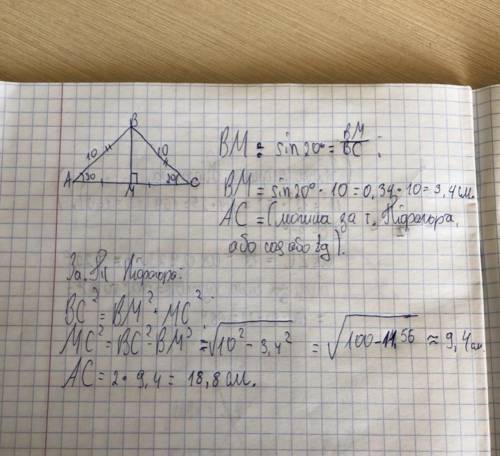 B
10 10
A 20 M 20 C
BM = sin20° = BM/BC;
BM = sin20° · 10 = 0,34 · 10 = 3,4 см.
AC = (можна за т. Піфагора,
або cos або tg).
За т. Піфагора:
BC² = BM² + MC²
MC² = BC² - BM² = √10² - 3,4² = √100 - 11,56 ≈ 9,4 см
AC = 2 · 9,4 = 18,8 см.